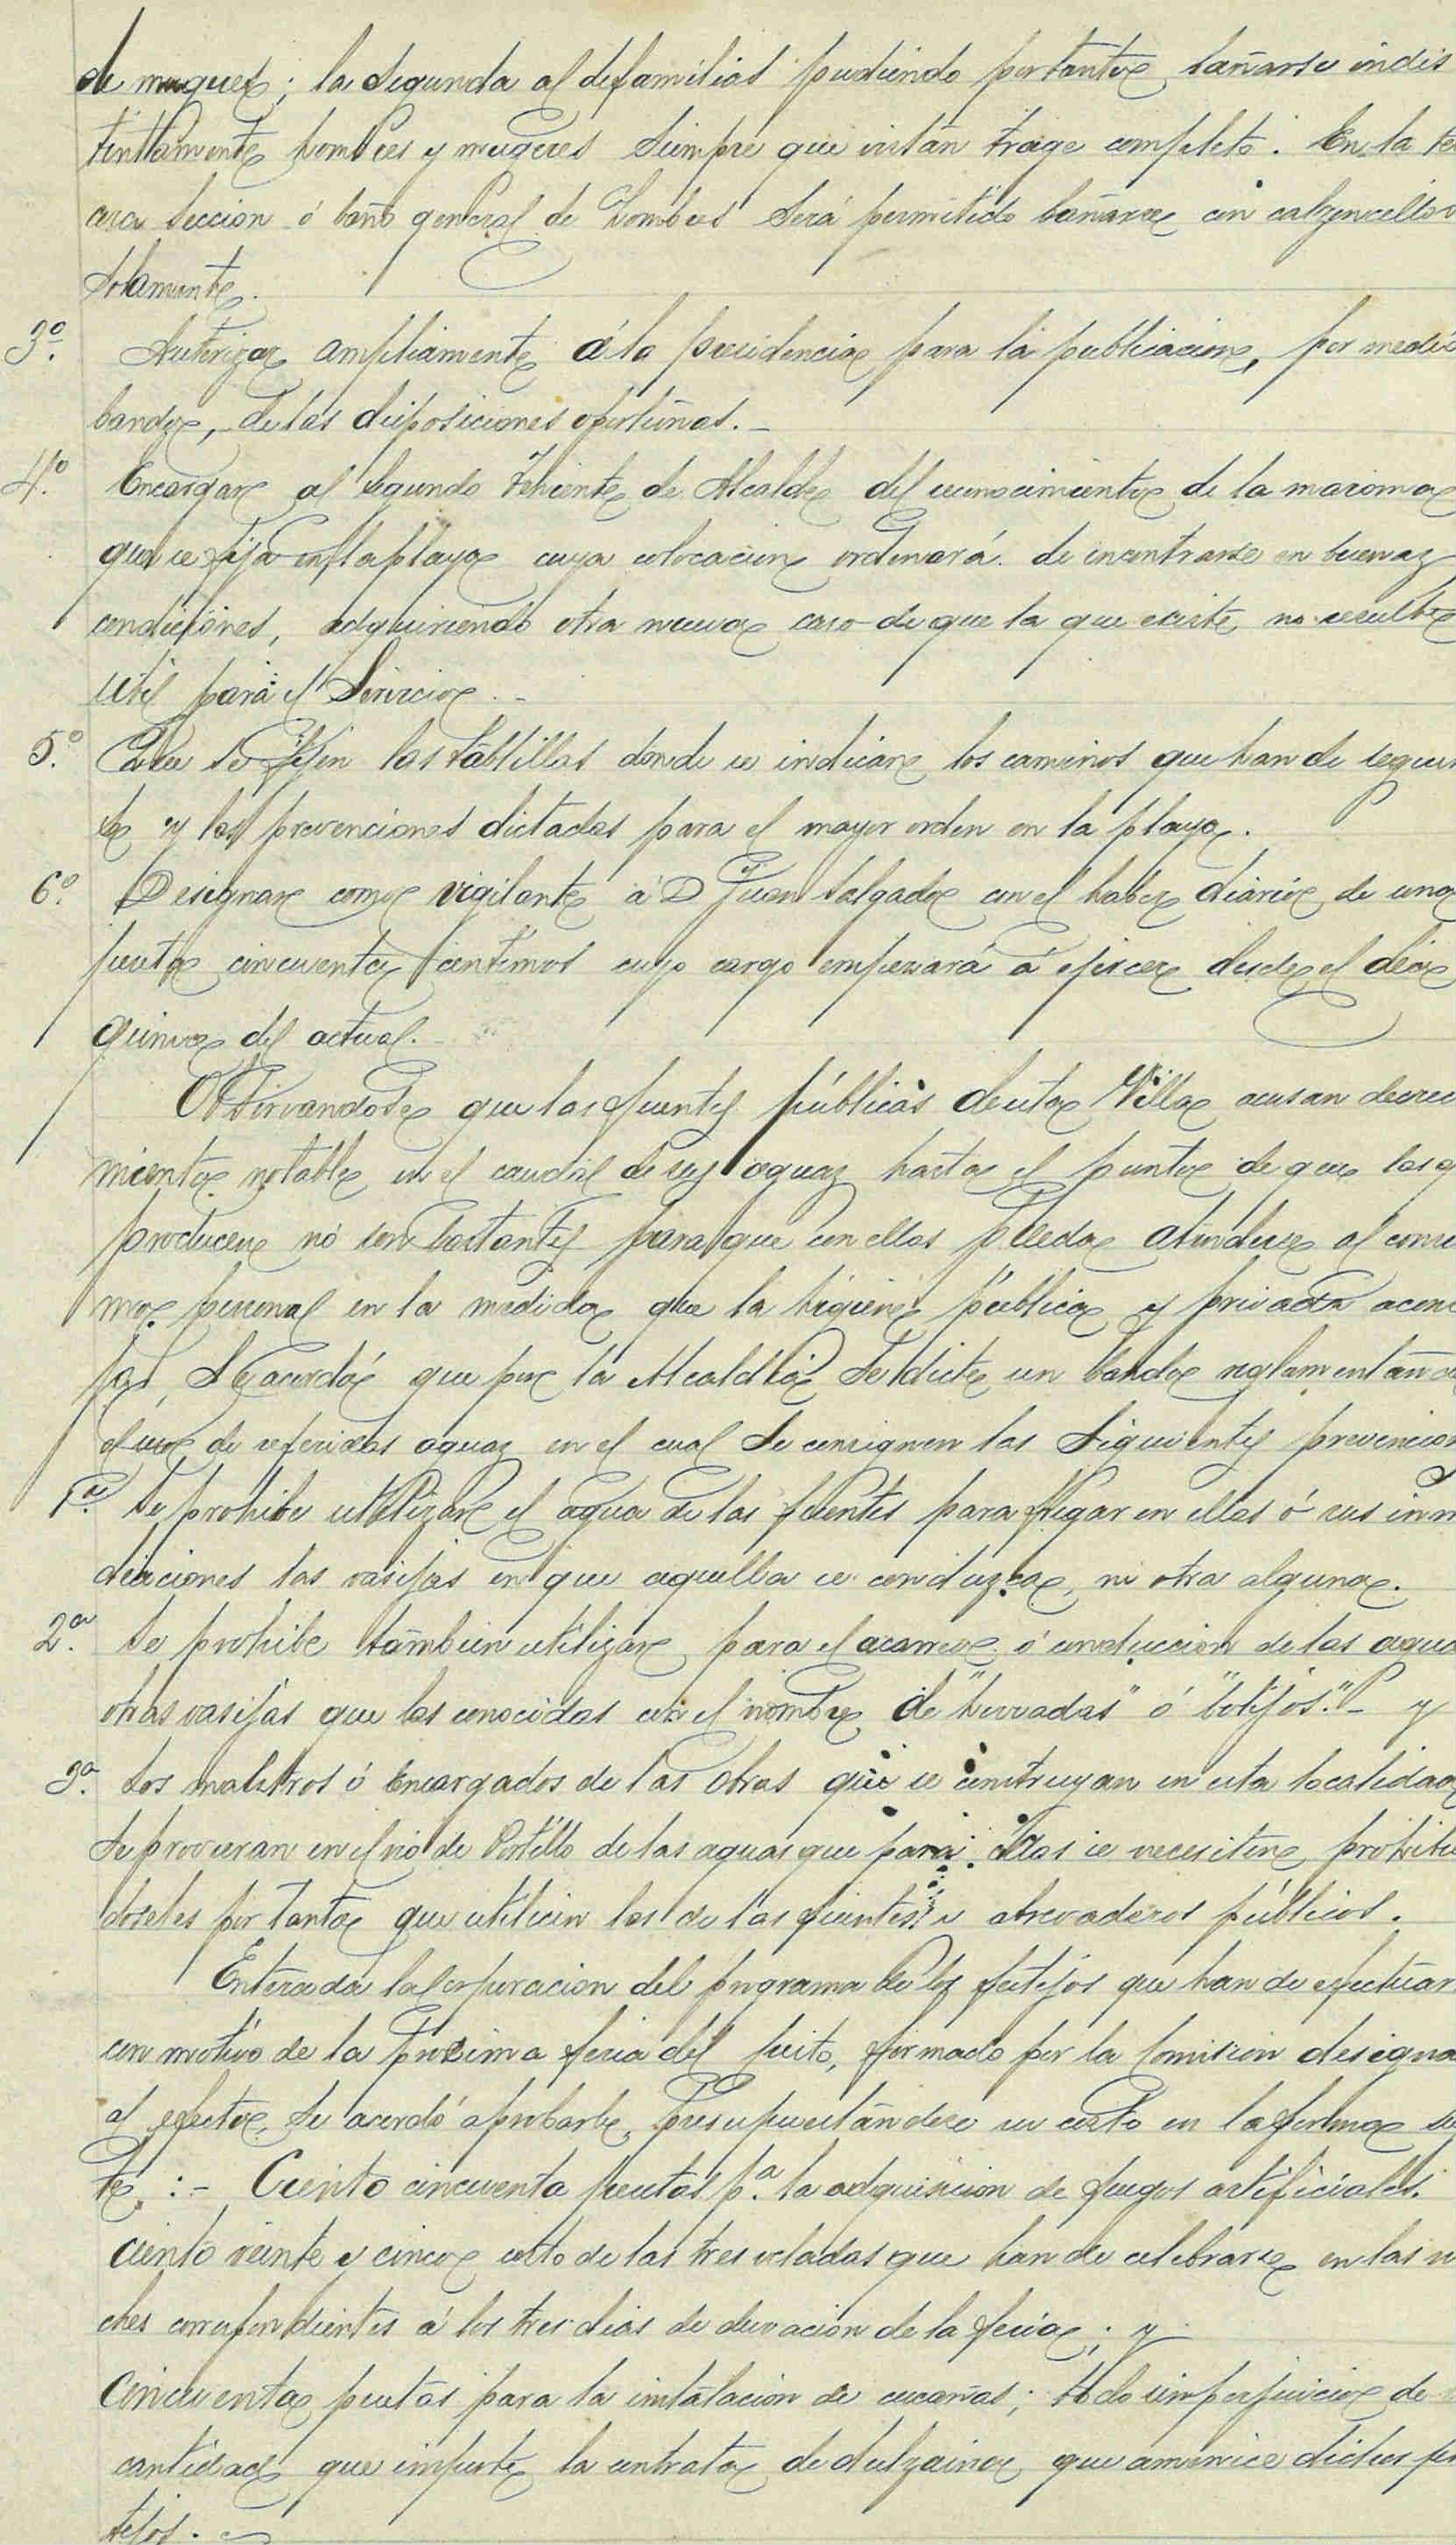 de mugeres; la segunda al de familias pudiendo por tanto bañarse indis
tintamente hombres y mugeres siempre que vistan trage completo. En la te
cera sección ó baño general de hombres será permitido bañarse con calzoncillo
solamente.
3º. Autorizar ampliamente á la presidencia para la publicacion, por medio
bando, de las disposiciones oportunas.-
4º. Encargar al segundo Teniente de Alcalde del reconocimiento de la maroma
que se fija en la playa cuya colocacion ordenará de encontrarse en buenas
condiciones, adquiriendo otra nueva caso de que la que existe no resulte
util para el servicio.-
5º. Que se fijen las tablillas donde se indican los caminos que han de seguir
se y las prevenciones dictadas para el mayor orden en la playa.
6º. Designar como vigilante á D Juan Salgado con el haber diario de una
peseta cincuenta centimos cuyo cargo empezará á ejercer desde el dia
quince del actual.-
Observandose que las fuentes públicas de esta Villa acusan decreci
miento notable en el caudal de sus aguas hasta el punto de que las q
producen no son bastantes para que con ellas pueda atenderse al consu
mo personal en la medida que la higiene pública y privada acon
jan, se acordó que por la Alcaldía se dicte un bando reglamentando
el uso de referidas aguas en el cual se consignen las siguientes prevencion
1ª. Se prohibe utilizar el agua de las fuentes para fregar en ellas ó sus inm
diaciones las vasijas en que aquella se conduzca, ni otra alguna.
2ª. Se prohibe tambien utilizar para el acarreo ó conduccion de las agua
otras vasijas que las conocidas con el nombre de "herradas" ó "botijos".- y
3ª. Los maestros ó Encargados de las obras que se construyan en esta localidad
se proveeran en el rio de Portillo de las aguas que para ellas se necesiten, prohibie
doseles por tanto que utilicen las de las fuentes y abrevaderos públicos.
Enterada la Corporacion del programa de los festejos que han de efectuar
con motivo de la próxima feria del , formado por la Comision designa
al efecto, se acordó aprobarle, presupuestándose su costo en la forma si
te: - Ciento cincuenta pesetas p.ª la adquisicion de fuegos artificiales.
ciento veinte y cinco costo de las tres veladas que han de celebrarse en las no
ches correspondientes á los tres dias de duracion de la feria; y
Cincuenta pesetas para la instalacion de cucañas; todo sin perjuicio de
cantidad que importe la contrata de dulzaina que amenice dichos fes
tejos.-